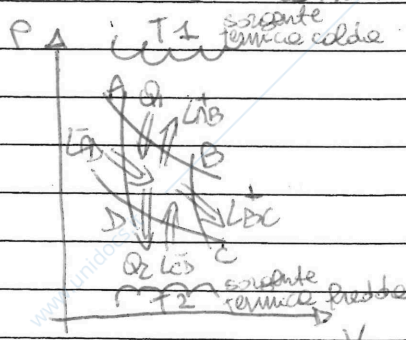 P T1 sorgente
termica calda
A Q1 L+AB
L-DA B
D L+BC
Q2 L-CD C
T2 sorgente
termica fredda
V
www.unidocs